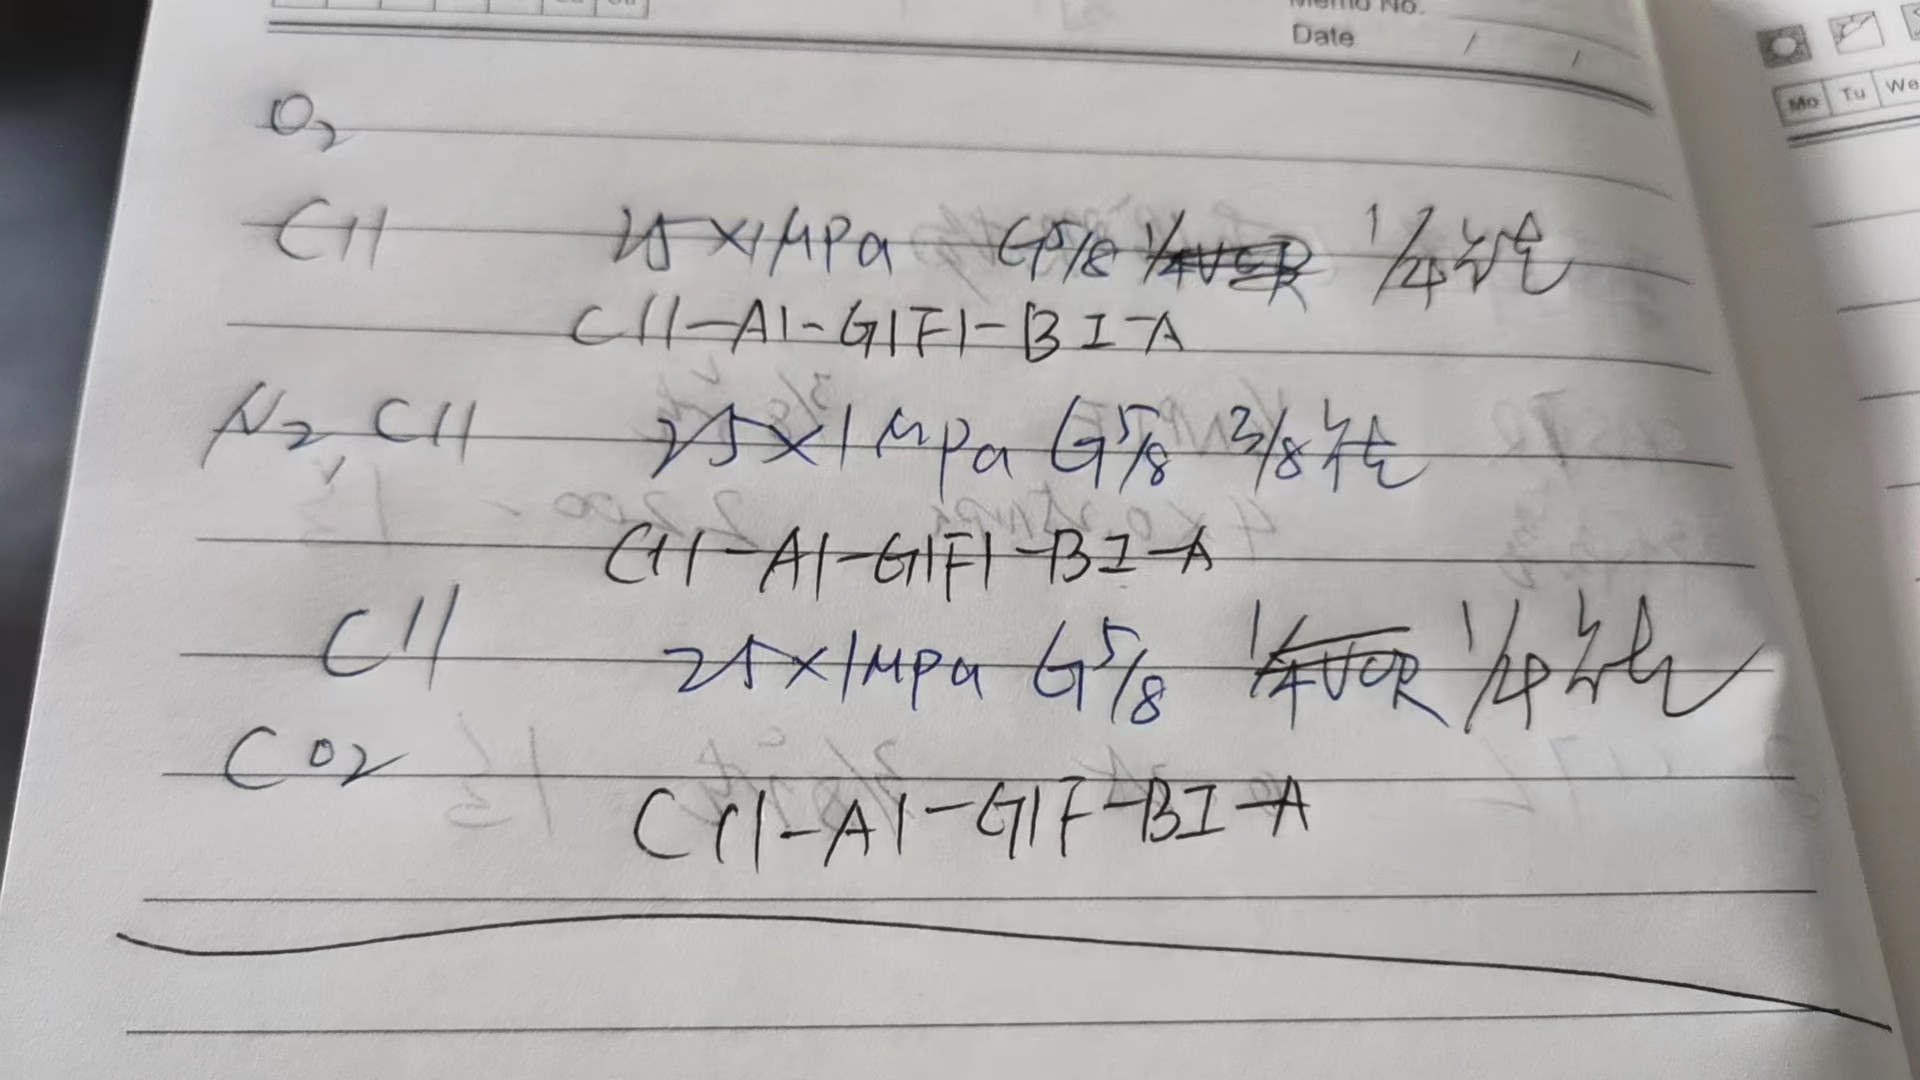 Memo No.
Date / /
Mo Tu We
O2
C11 25×1MPa G5/8 1/4VCR 1/4
C11-A1-G1F1-BI-A
N2, C11 25×1MPa G5/8 3/8
C11-A1-G1F1-BI-A
C11 25×1MPa G5/8 1/4VCR 1/4
CO2
C11-A1-G1F-BI-A